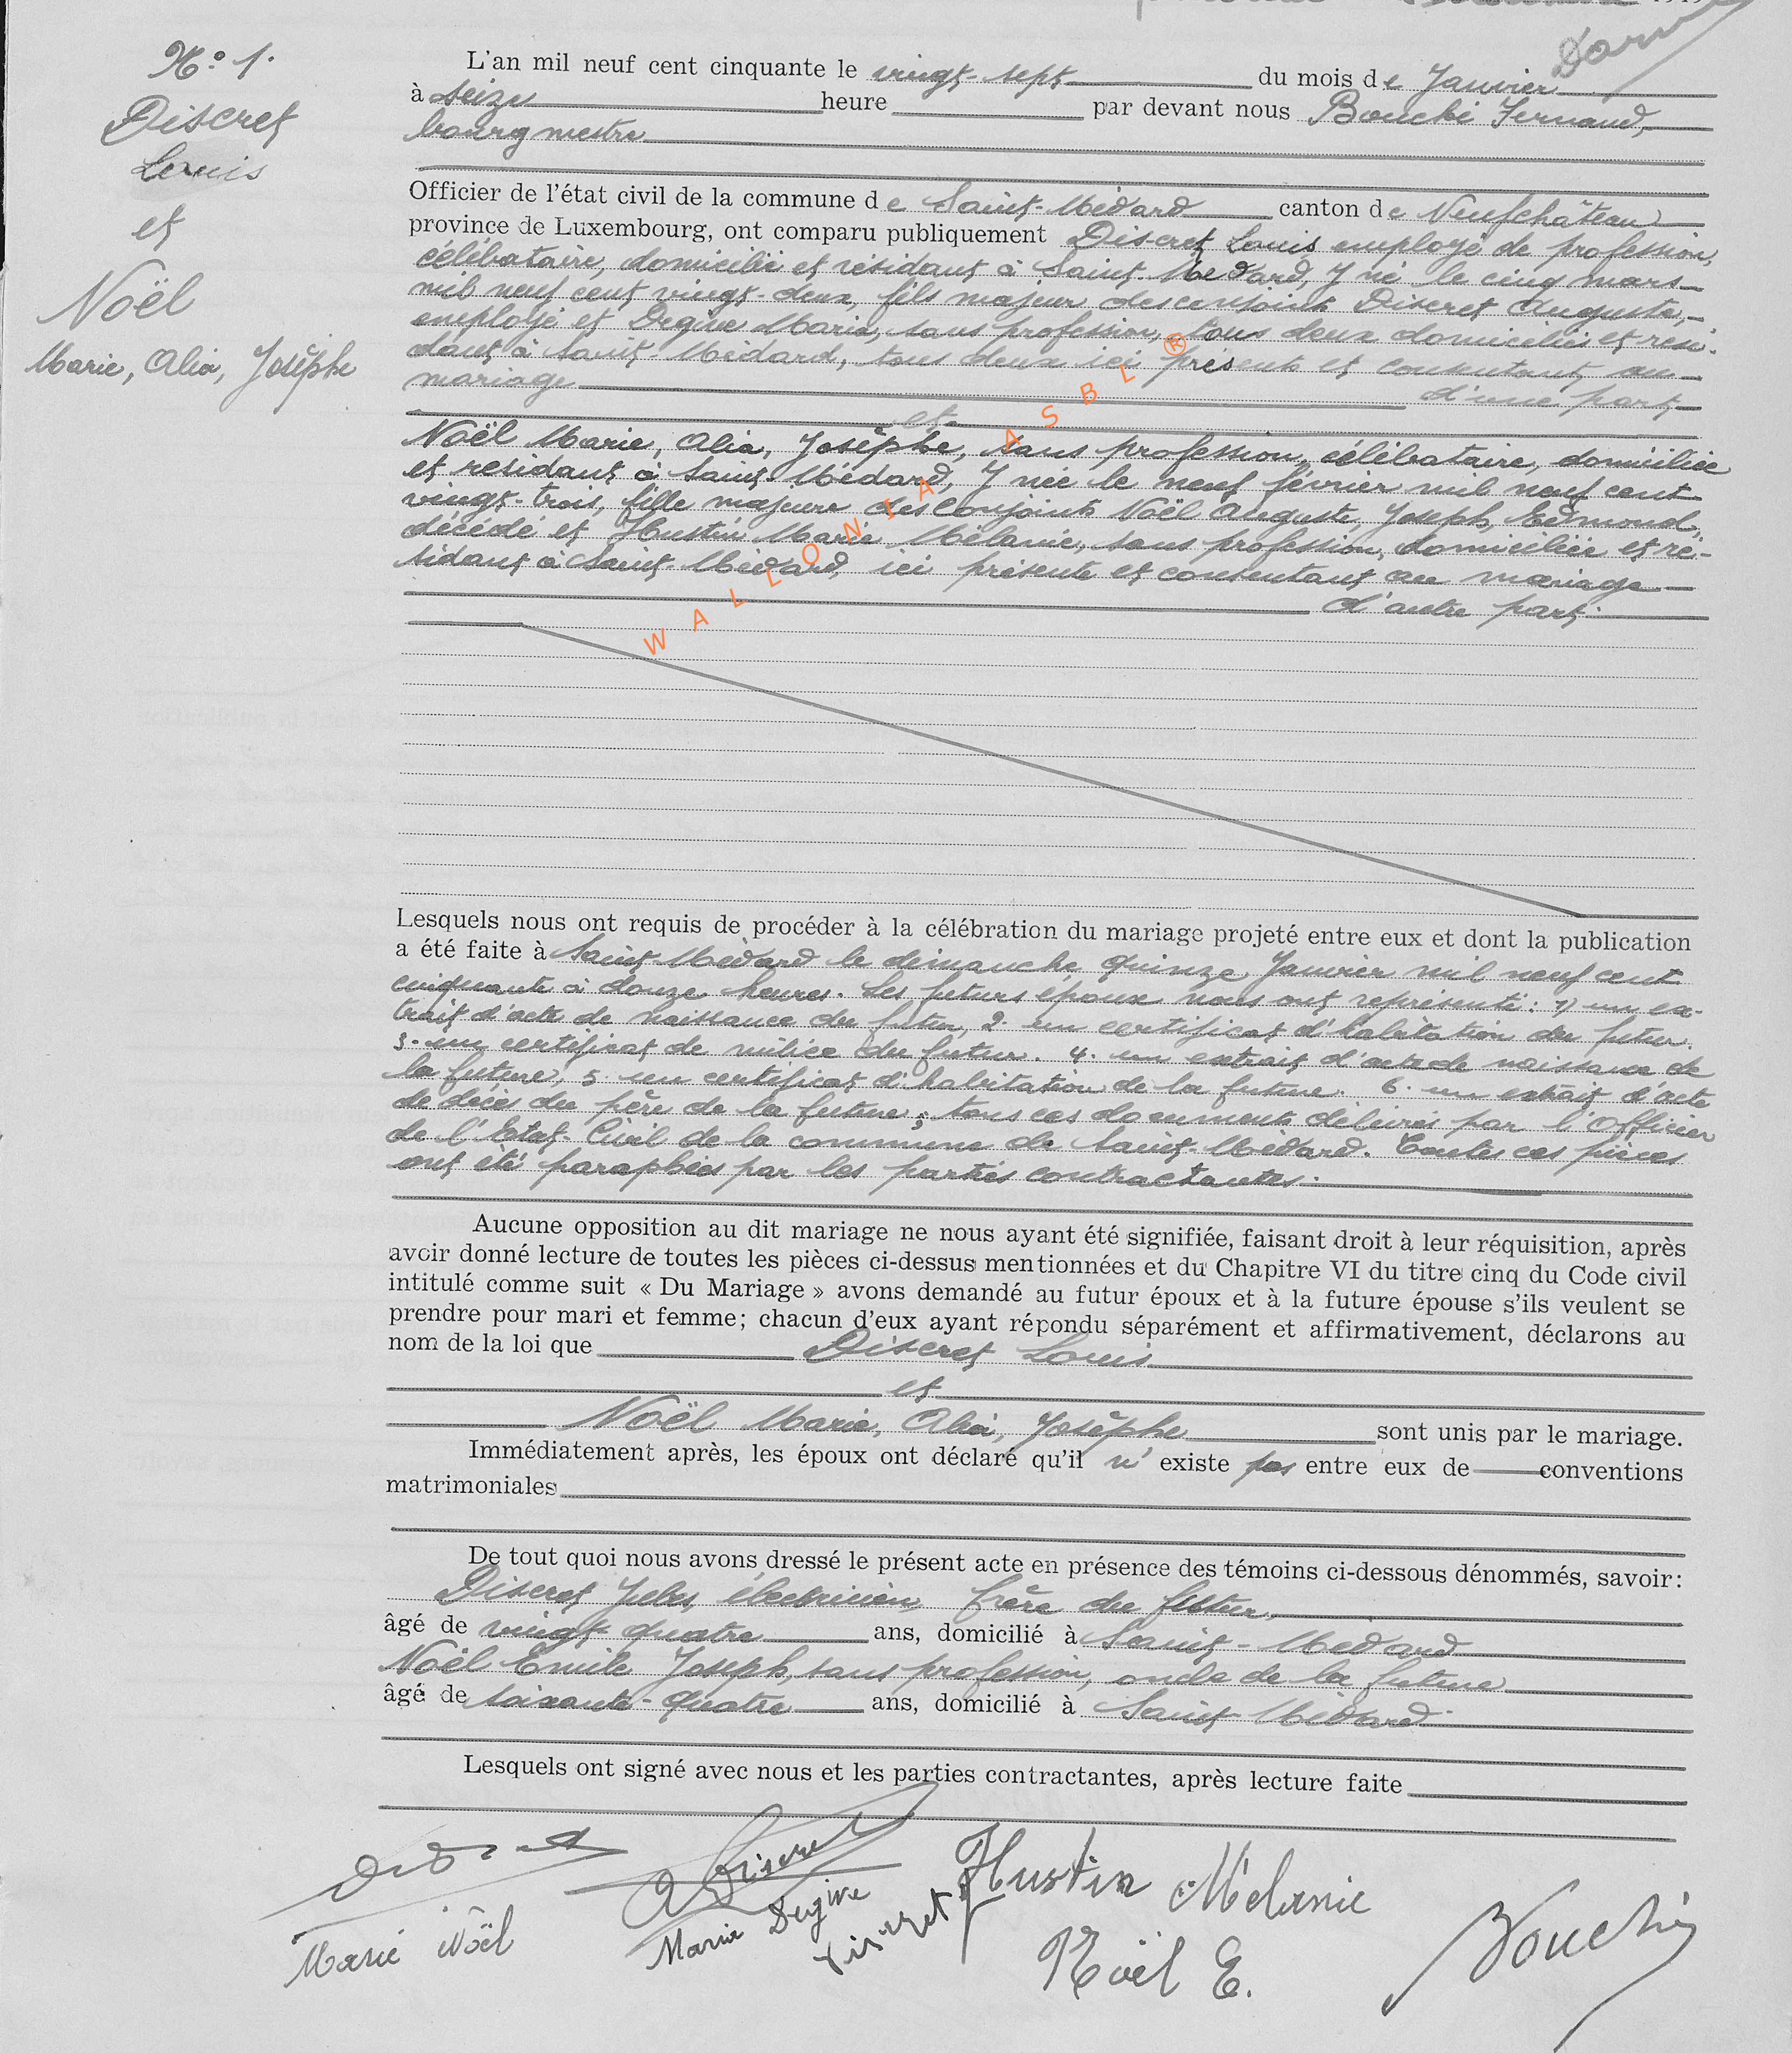 N° 1.
Discret
Louis
et
Noël
Marie, Alia, Josèphe
L'an mil neuf cent cinquante le vingt-sept du mois de Janvier
à seize heure par devant nous Bouché Fernand,
bourgmestre
Officier de l'état civil de la commune de Saint-Médard canton de Neufchâteau
province de Luxembourg, ont comparu publiquement Discret Louis employé de profession,
célébataire, domicilié et résidant à Saint-Médard, y né le cinq mars
mil neuf cent vingt-deux, fils majeur des conjoints Discret Auguste,
employé et Degive Maria, sans profession, tous deux domiciliés et rési-
dant à Saint-Médard, tous deux ici présents et consentant au
mariage d'une part,
et
Noël Marie, Alia, Josèphe, sans profession, célébataire, domiciliée
et residant à Saint-Médard, y née le neuf février mil neuf cent
vingt-trois, fille majeure des conjoints Noël Auguste, Joseph, Edmond,
décédé et Hustin Marie Mélanie, sans profession, domiciliée et ré-
sidant à Saint-Médard, ici présente et consentant au mariage
d'autre part.
WALLONIA ASBL ®
Lesquels nous ont requis de procéder à la célébration du mariage projeté entre eux et dont la publication
a été faite à Saint-Médard le dimanche quinze Janvier mil neuf cent
cinquante à douze heures. Les futurs époux nous ont représenté: 1) un ex-
trait d'acte de naissance du futur, 2. un certificat d'habitation du futur.
3. un certificat de milice du futur. 4. un extrait d'acte de naissance de
la future, 5. un certificat d'habitation de la future. 6. un extrait d'acte
de décès du père de la future; tous ces documents délivrés par l'Officier
de l'Etat-Civil de la commune de Saint-Médard. Toutes ces pièces
ont été paraphées par les parties contractantes.
Aucune opposition au dit mariage ne nous ayant été signifiée, faisant droit à leur réquisition, après
avoir donné lecture de toutes les pièces ci-dessus mentionnées et du Chapitre VI du titre cinq du Code civil
intitulé comme suit « Du Mariage » avons demandé au futur époux et à la future épouse s'ils veulent se
prendre pour mari et femme; chacun d'eux ayant répondu séparément et affirmativement, déclarons au
nom de la loi que Discret Louis
et
Noël Marie, Alia, Josèphe sont unis par le mariage.
Immédiatement après, les époux ont déclaré qu'il n' existe pas entre eux de conventions
matrimoniales
De tout quoi nous avons dressé le présent acte en présence des témoins ci-dessous dénommés, savoir:
Discret Jules, électricien, frère du futur,
âgé de vingt-quatre ans, domicilié à Saint-Médard
Noël Emile Joseph, sans profession, oncle de la future
âgé de soixante-quatre ans, domicilié à Saint-Médard.
Lesquels ont signé avec nous et les parties contractantes, après lecture faite
A Discret
Hustin Mélanie
Marie Noël
Maria Degive
Discret J
Noël E.
Bouché